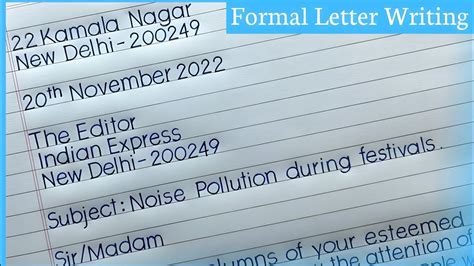 Formal Letter Writing
22 Kamala Nagar
New Delhi-200249
20th November 2022
The Editor
Indian Express
New Delhi-200249
Subject: Noise Pollution during festivals.
Sir/Madam
columns of your esteemed
the attention of